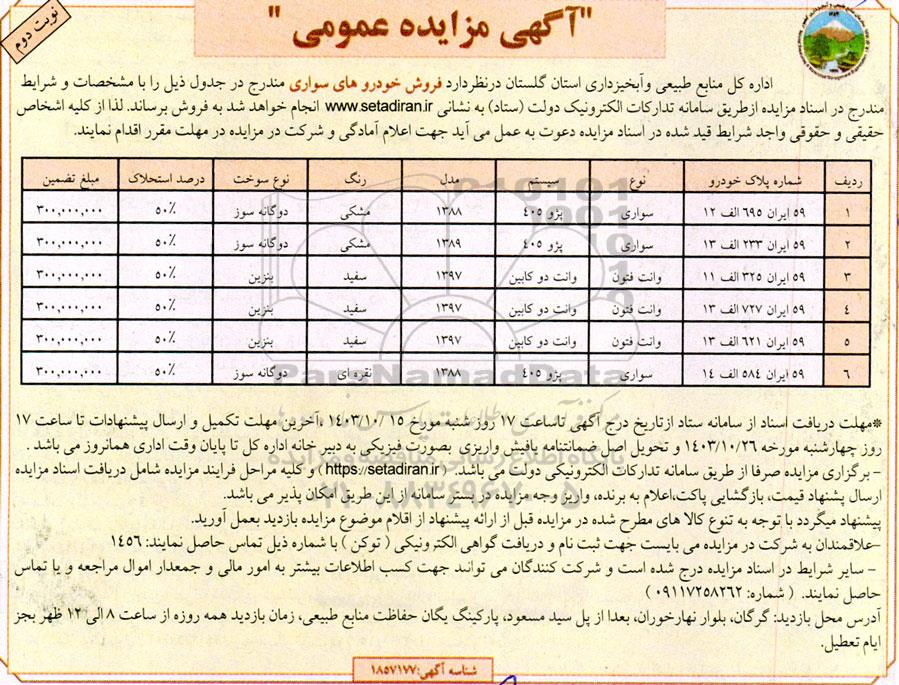 نوبت دوم
"آگهی مزایده عمومی"
اداره کل منابع طبیعی وآبخیزداری استان گلستان درنظردارد فروش خودرو های سواری مندرج در جدول ذیل را با مشخصات و شرایط
مندرج در اسناد مزایده ازطریق سامانه تدارکات الکترونیک دولت (ستاد) به نشانی www.setadiran.ir انجام خواهد شد به فروش برساند. لذا از کلیه اشخاص
حقیقی و حقوقی واجد شرایط قید شده در اسناد مزایده دعوت به عمل می آید جهت اعلام آمادگی و شرکت در مزایده در مهلت مقرر اقدام نمایند.
ردیف شماره پلاک خودرو نوع سیستم مدل رنگ نوع سوخت درصد استحلاک مبلغ تضمین
۱ ۵۹ ایران ۶۹۵ الف ۱۲ سواری پژو ۴۰۵ ۱۳۸۸ مشکی دوگانه سوز ۵۰٪ ۳۰۰,۰۰۰,۰۰۰
۲ ۵۹ ایران ۲۳۳ الف ۱۳ سواری پژو ۴۰۵ ۱۳۸۹ مشکی دوگانه سوز ۵۰٪ ۳۰۰,۰۰۰,۰۰۰
۳ ۵۹ ایران ۳۲۵ الف ۱۱ وانت فتون وانت دو کابین ۱۳۹۷ سفید بنزین ۵۰٪ ۳۰۰,۰۰۰,۰۰۰
۴ ۵۹ ایران ۷۲۷ الف ۱۳ وانت فتون وانت دو کابین ۱۳۹۷ سفید بنزین ۵۰٪ ۳۰۰,۰۰۰,۰۰۰
۵ ۵۹ ایران ۶۲۱ الف ۱۳ وانت فتون وانت دو کابین ۱۳۹۷ سفید بنزین ۵۰٪ ۳۰۰,۰۰۰,۰۰۰
۶ ۵۹ ایران ۵۸۴ الف ۱۴ سواری پژو ۴۰۵ ۱۳۸۸ نقره ای دوگانه سوز ۵۰٪ ۳۰۰,۰۰۰,۰۰۰
ParsNamadData
*مهلت دریافت اسناد از سامانه ستاد ازتاریخ درج آگهی تاساعت ۱۷ روز شنبه مورخ ۱۵ /۱۴۰۳/۱۰ ،آخرین مهلت تکمیل و ارسال پیشنهادات تا ساعت ۱۷
روز چهارشنبه مورخه ۱۴۰۳/۱۰/۲۶ و تحویل اصل ضمانتنامه یافیش واریزی بصورت فیزیکی به دبیر خانه اداره کل تا پایان وقت اداری همانروز می باشد .
– برگزاری مزایده صرفا از طریق سامانه تدارکات الکترونیکی دولت می باشد. (https://setadiran.ir) و کلیه مراحل فرایند مزایده شامل دریافت اسناد مزایده
ارسال پشنهاد قیمت، بازگشایی پاکت،اعلام به برنده، واریز وجه مزایده در بستر سامانه از این طریق امکان پذیر می باشد.
پیشنهاد میگردد با توجه به تنوع کالا های مطرح شده در مزایده قبل از ارائه پیشنهاد از اقلام موضوع مزایده بازدید بعمل آورید.
–علاقمندان به شرکت در مزایده می بایست جهت ثبت نام و دریافت گواهی الکترونیکی ( توکن ) با شماره ذیل تماس حاصل نمایند: ۱۴۵۶
– سایر شرایط در اسناد مزایده درج شده است و شرکت کنندگان می توانند جهت کسب اطلاعات بیشتر به امور مالی و جمعدار اموال مراجعه و یا تماس
حاصل نمایند. ( شماره: ۰۹۱۱۷۲۵۸۲۶۲ )
آدرس محل بازدید: گرگان، بلوار نهارخوران، بعدا از پل سید مسعود، پارکینگ یگان حفاظت منابع طبیعی، زمان بازدید همه روزه از ساعت ۸ الی ۱۲ ظهر بجز
ایام تعطیل.
شناسه آگهی:۱۸۵۷۱۷۷